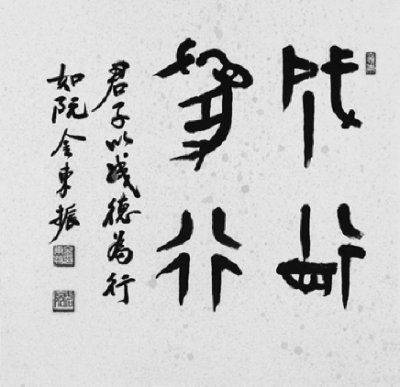 成德
為行
君子以成德為行
如阮金東振